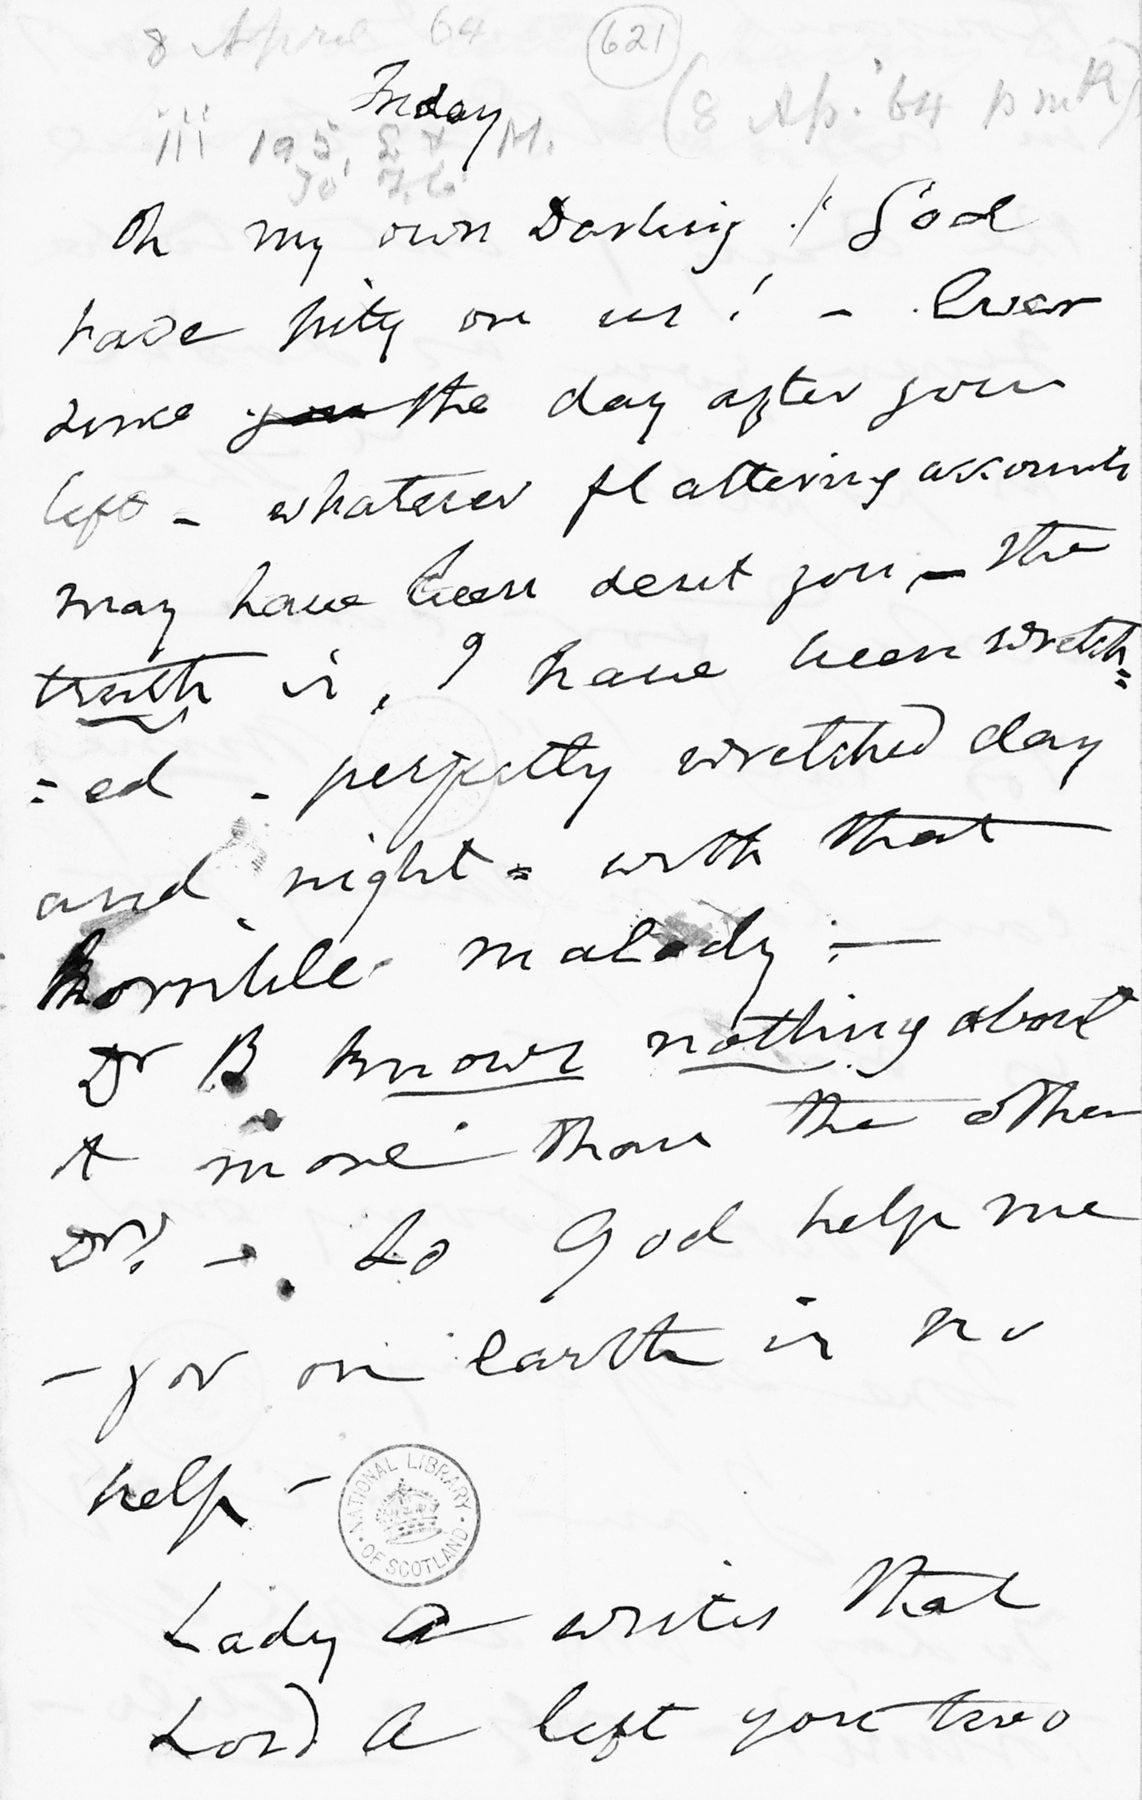 8 April 64
621
(8 Ap. 64 pmk)
Friday
iii 195,
Oh my own Darling! God
have pity on us! – Ever
since you the day after you
left – whatever flattering accounts
may have been sent you – the
truth is, I have been wretch=
=ed – perfectly wretched day
and night = with that
horrible malady. –
Dr B knows nothing about
it more than the other
Drs! – So God help me
– for on earth is no
help –
NATIONAL LIBRARY
OF SCOTLAND
Lady A writes that
Lord A left you two